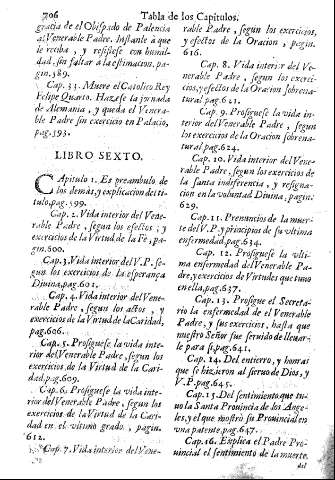 706 Tabla de los Capitulos.
gracia de el Obispado de Palencia
al Venerable Padre. Instante à que
le reciba, y resistese con humil-
dad, sin faltar à la estimacion. pa-
gin.589.
Cap. 33. Muere el Catolico Rey
Felipe Quarto. Hazese la jornada
de Alemania, y queda el Venera-
ble Padre sin exercicio en Palacio,
pag.593.
LIBRO SEXTO.
CApitulo 1. Es preambulo de
los demàs, y explicacion del ti-
tulo, pag.599.
Cap. 2. Vida interior del Vene-
rable Padre, segun los efectos, y
exercicios de la Virtud de la Fè, pa-
gin.600.
Cap.3. Vida interior del V.P. se-
gun los exercicios de la esperança
Divina, pag.601.
Cap. 4. Vida interior del Vene-
rable Padre, segun los actos, y
exercicios de la Virtud de la Caridad,
pag.606.
Cap. 5. Prosiguese la vida inte-
rior del Venerable Padre, segun los
exercicios de la Virtud de la Cari-
dad, pag.609.
Cap. 6. Prosiguese la vida inte-
rior del Venerable Padre, segun los
exercicios de la Virtud de la Cari-
dad en el vltimo grado, pagin.
612.
Cap. 7. Vida interior del Vene-
rable Padre, segun los exercicios,
y efectos de la Oracion, pagin.
616.
Cap. 8. Vida interior del Ve-
nerable Padre, segun los exerci-
cios, y efectos de la Oracion sobrena-
tural, pag.621.
Cap. 9. Prosiguese la vida in-
terior del Venerable Padre, segun
los exercicios de la Oracion sobrena-
tural, pag.624.
Cap. 10. Vida interior del Vene-
rable Padre, segun los exercicios de
la santa indiferencia, y resigna-
cion en la voluntad Divina, pagin.
629.
Cap. 11. Prenuncios de la muer-
te del V.P. y principios de su vltima
enfermedad, pag.634.
Cap. 12. Prosiguese la vlti-
ma enfermedad del Venerable Pa-
dre, y exercicios de Virtudes que tuvo
en ella, pag.637.
Cap. 13. Prosigue el Secreta-
rio la enfermedad de el Venerable
Padre, y sus exercicios, hasta que
nuestro Señor fue servido de llevar-
le para sì, pag.641.
Cap. 14. Del entierro, y honras
que se hizieron al siervo de Dios, y
V.P. pag.645.
Cap. 15. Del sentimiento que tu-
vo la Santa Provincia de los Ange-
les, y el que mostrò su Provincial en
vna patente, pag.647.
Cap. 16. Explica el Padre Pro-
vincial el sentimiento de la muerte
del